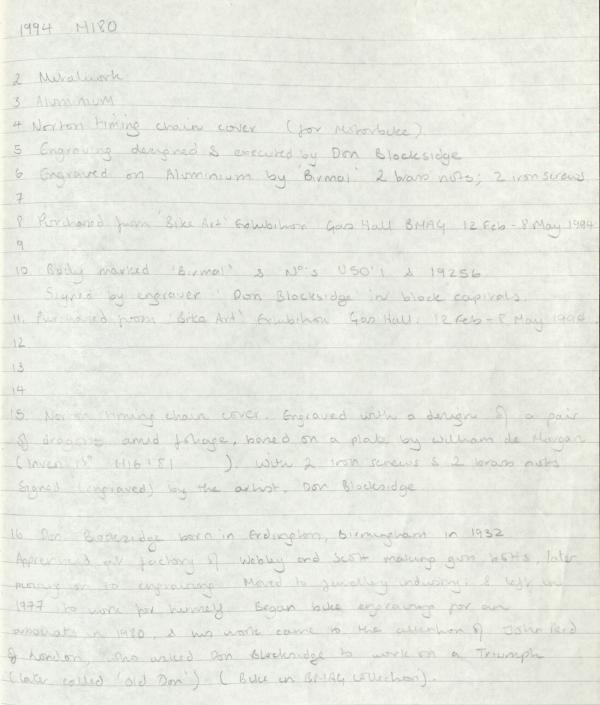 1994 M180
2 Metalwork
3 Aluminium
4 Norton timing chain cover (for Motorbike)
5 Engraving designed & executed by Don Blocksidge
6 Engraved on Aluminium by Birmal 2 brass nuts; 2 iron screws
7
8 Purchased from 'Bike Art' Exhibition Gas Hall BMAG 12 Feb - 8 May 1994
9
10 Body marked 'Birmal' & No's USO'1 & 19256
Signed by engraver 'Don Blocksidge in block capitals.
11. Purchased from 'Bike Art' Exhibition Gas Hall. 12 Feb - 8 May 1994.
12
13
14
15 Norton timing chain cover. Engraved with a design of a pair
of dragons amid foliage, based on a plate by William de Morgan
(Invent N° M16'81 ). With 2 iron screws & 2 brass nuts
Signed (engraved) by the artist. Don Blocksidge
16 Don Blocksidge born in Erdington, Birmingham in 1932
at factory of Webley and Scott making gun, later
moving on to engraving. Moved to jewellery industry. & left in
1977 to work for himself. Began bike engraving for an
associate in 1980, & his work came to the attention of John
of London, who asked Don Blocksidge to work on a Triumph
(later called 'Old Don') (Bike in BMAG collection).